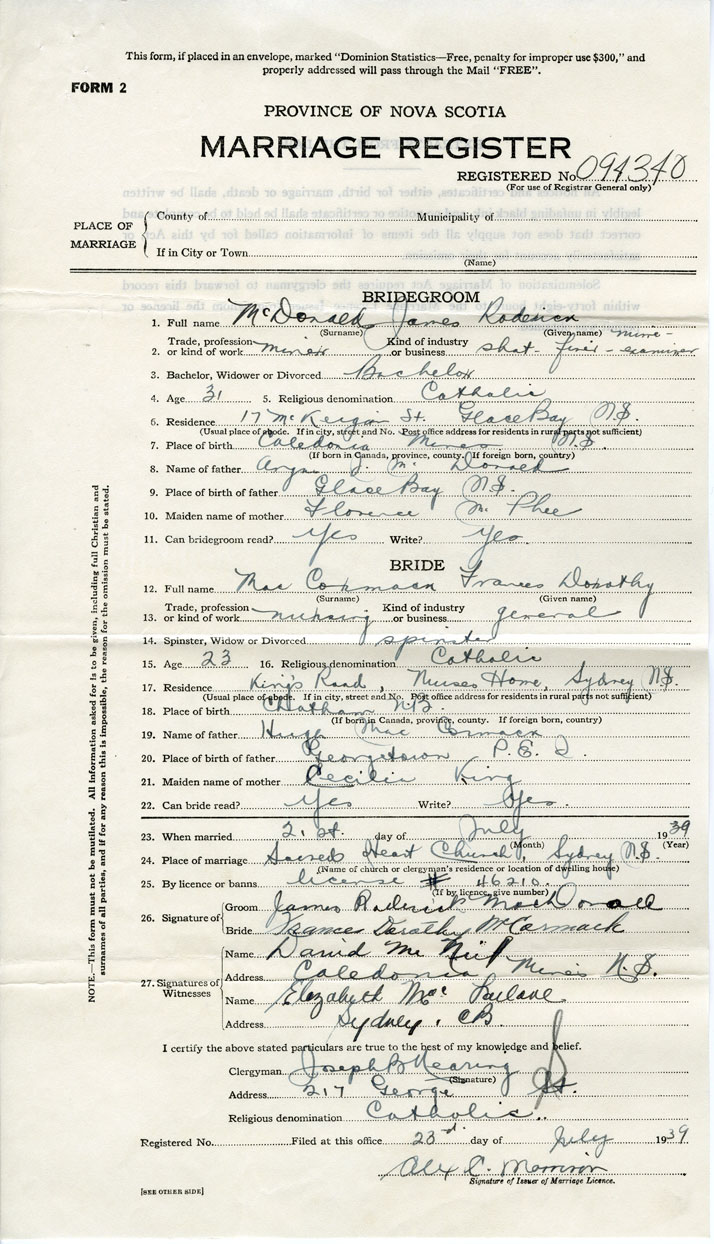 This form, if placed in an envelope, marked "Dominion Statistics—Free, penalty for improper use $300," and
properly addressed will pass through the Mail "FREE".
FORM 2
PROVINCE OF NOVA SCOTIA
MARRIAGE REGISTER
REGISTERED No. 094340
(For use of Registrar General only)
PLACE OF MARRIAGE
County of Municipality of
If in City or Town
(Name)
BRIDEGROOM
1. Full name McDonald James Roderick
(Surname) (Given name)
2. Trade, profession or kind of work miner Kind of industry or business shot-firer-examiner mine-
3. Bachelor, Widower or Divorced Bachelor
4. Age 31 5. Religious denomination Catholic
6. Residence 17 McKeigan St. Glace Bay N.S.
(Usual place of abode. If in city, street and No. Post office address for residents in rural parts not sufficient)
7. Place of birth Caledonia Mines N.S.
(If born in Canada, province, county. If foreign born, country)
8. Name of father J. Mc Donald
9. Place of birth of father Glace Bay N.S.
10. Maiden name of mother Florence Mc Phee
11. Can bridegroom read? Yes Write? Yes
BRIDE
12. Full name Mac Cormack Frances Dorothy
(Surname) (Given name)
13. Trade, profession or kind of work nursing Kind of industry or business general
14. Spinster, Widow or Divorced spinster
15. Age 23 16. Religious denomination Catholic
17. Residence King's Road, Nurses Home, Sydney N.S.
(Usual place of abode. If in city, street and No. Post office address for residents in rural parts not sufficient)
18. Place of birth Chatham N.B.
(If born in Canada, province, county. If foreign born, country)
19. Name of father Hugh Mac Cormack
20. Place of birth of father Georgetown P.E.I.
21. Maiden name of mother Cecilia King
22. Can bride read? Yes Write? Yes.
23. When married 21st. day of July 1939
(Month) (Year)
24. Place of marriage Sacred Heart Church, Sydney N.S.
(Name of church or clergyman's residence or location of dwelling house)
25. By licence or banns license # 46210
(If by licence, give number)
26. Signature of
Groom James Roderick MacDonald
Bride Frances Dorothy McCormack
27. Signatures of Witnesses
Name David Mc Neil
Address Caledonia Mines N.S.
Name Elizabeth Mac
Address Sydney, C.B.
I certify the above stated particulars are true to the best of my knowledge and belief.
Clergyman Joseph B Nearing
(Signature)
Address 217 George St.
Religious denomination Catholic
Registered No. Filed at this office 23rd day of July 1939
Alex C. Morrison
Signature of Issuer of Marriage Licence.
[SEE OTHER SIDE]
NOTE.—This form must not be mutilated. All Information asked for is to be given, including full Christian and
surnames of all parties, and if for any reason this is impossible, the reason for the omission must be stated.